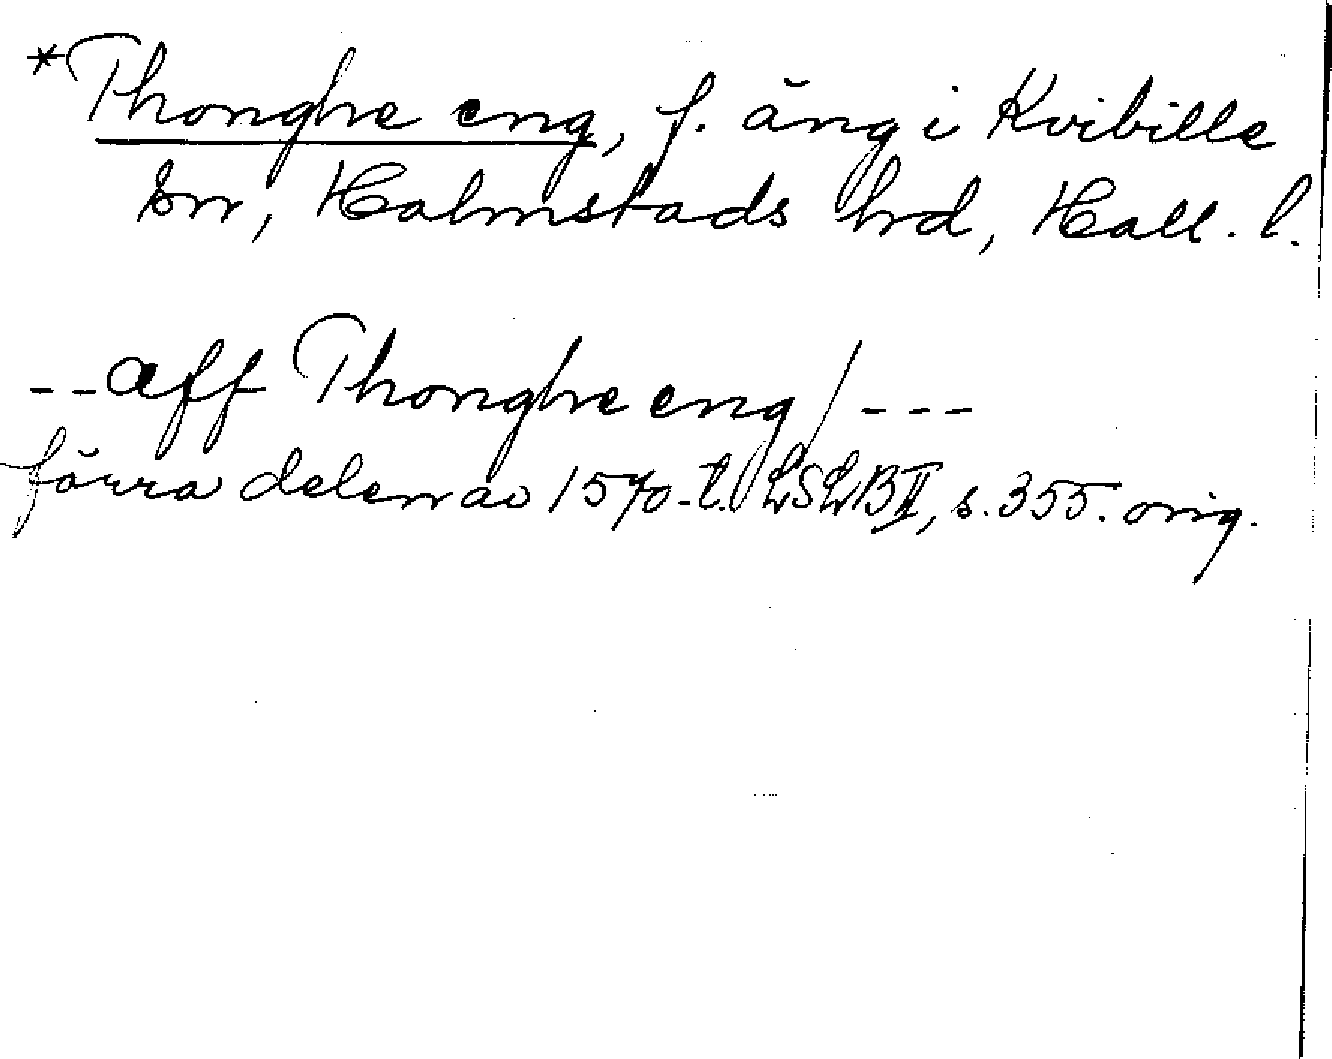 *Thonghe eng, f. äng i Kvibille
sn, Halmstads hrd, Hall. l.
--aff Thonghe eng/---
förra delen av 1570-t. LSLB II, s. 355. orig.